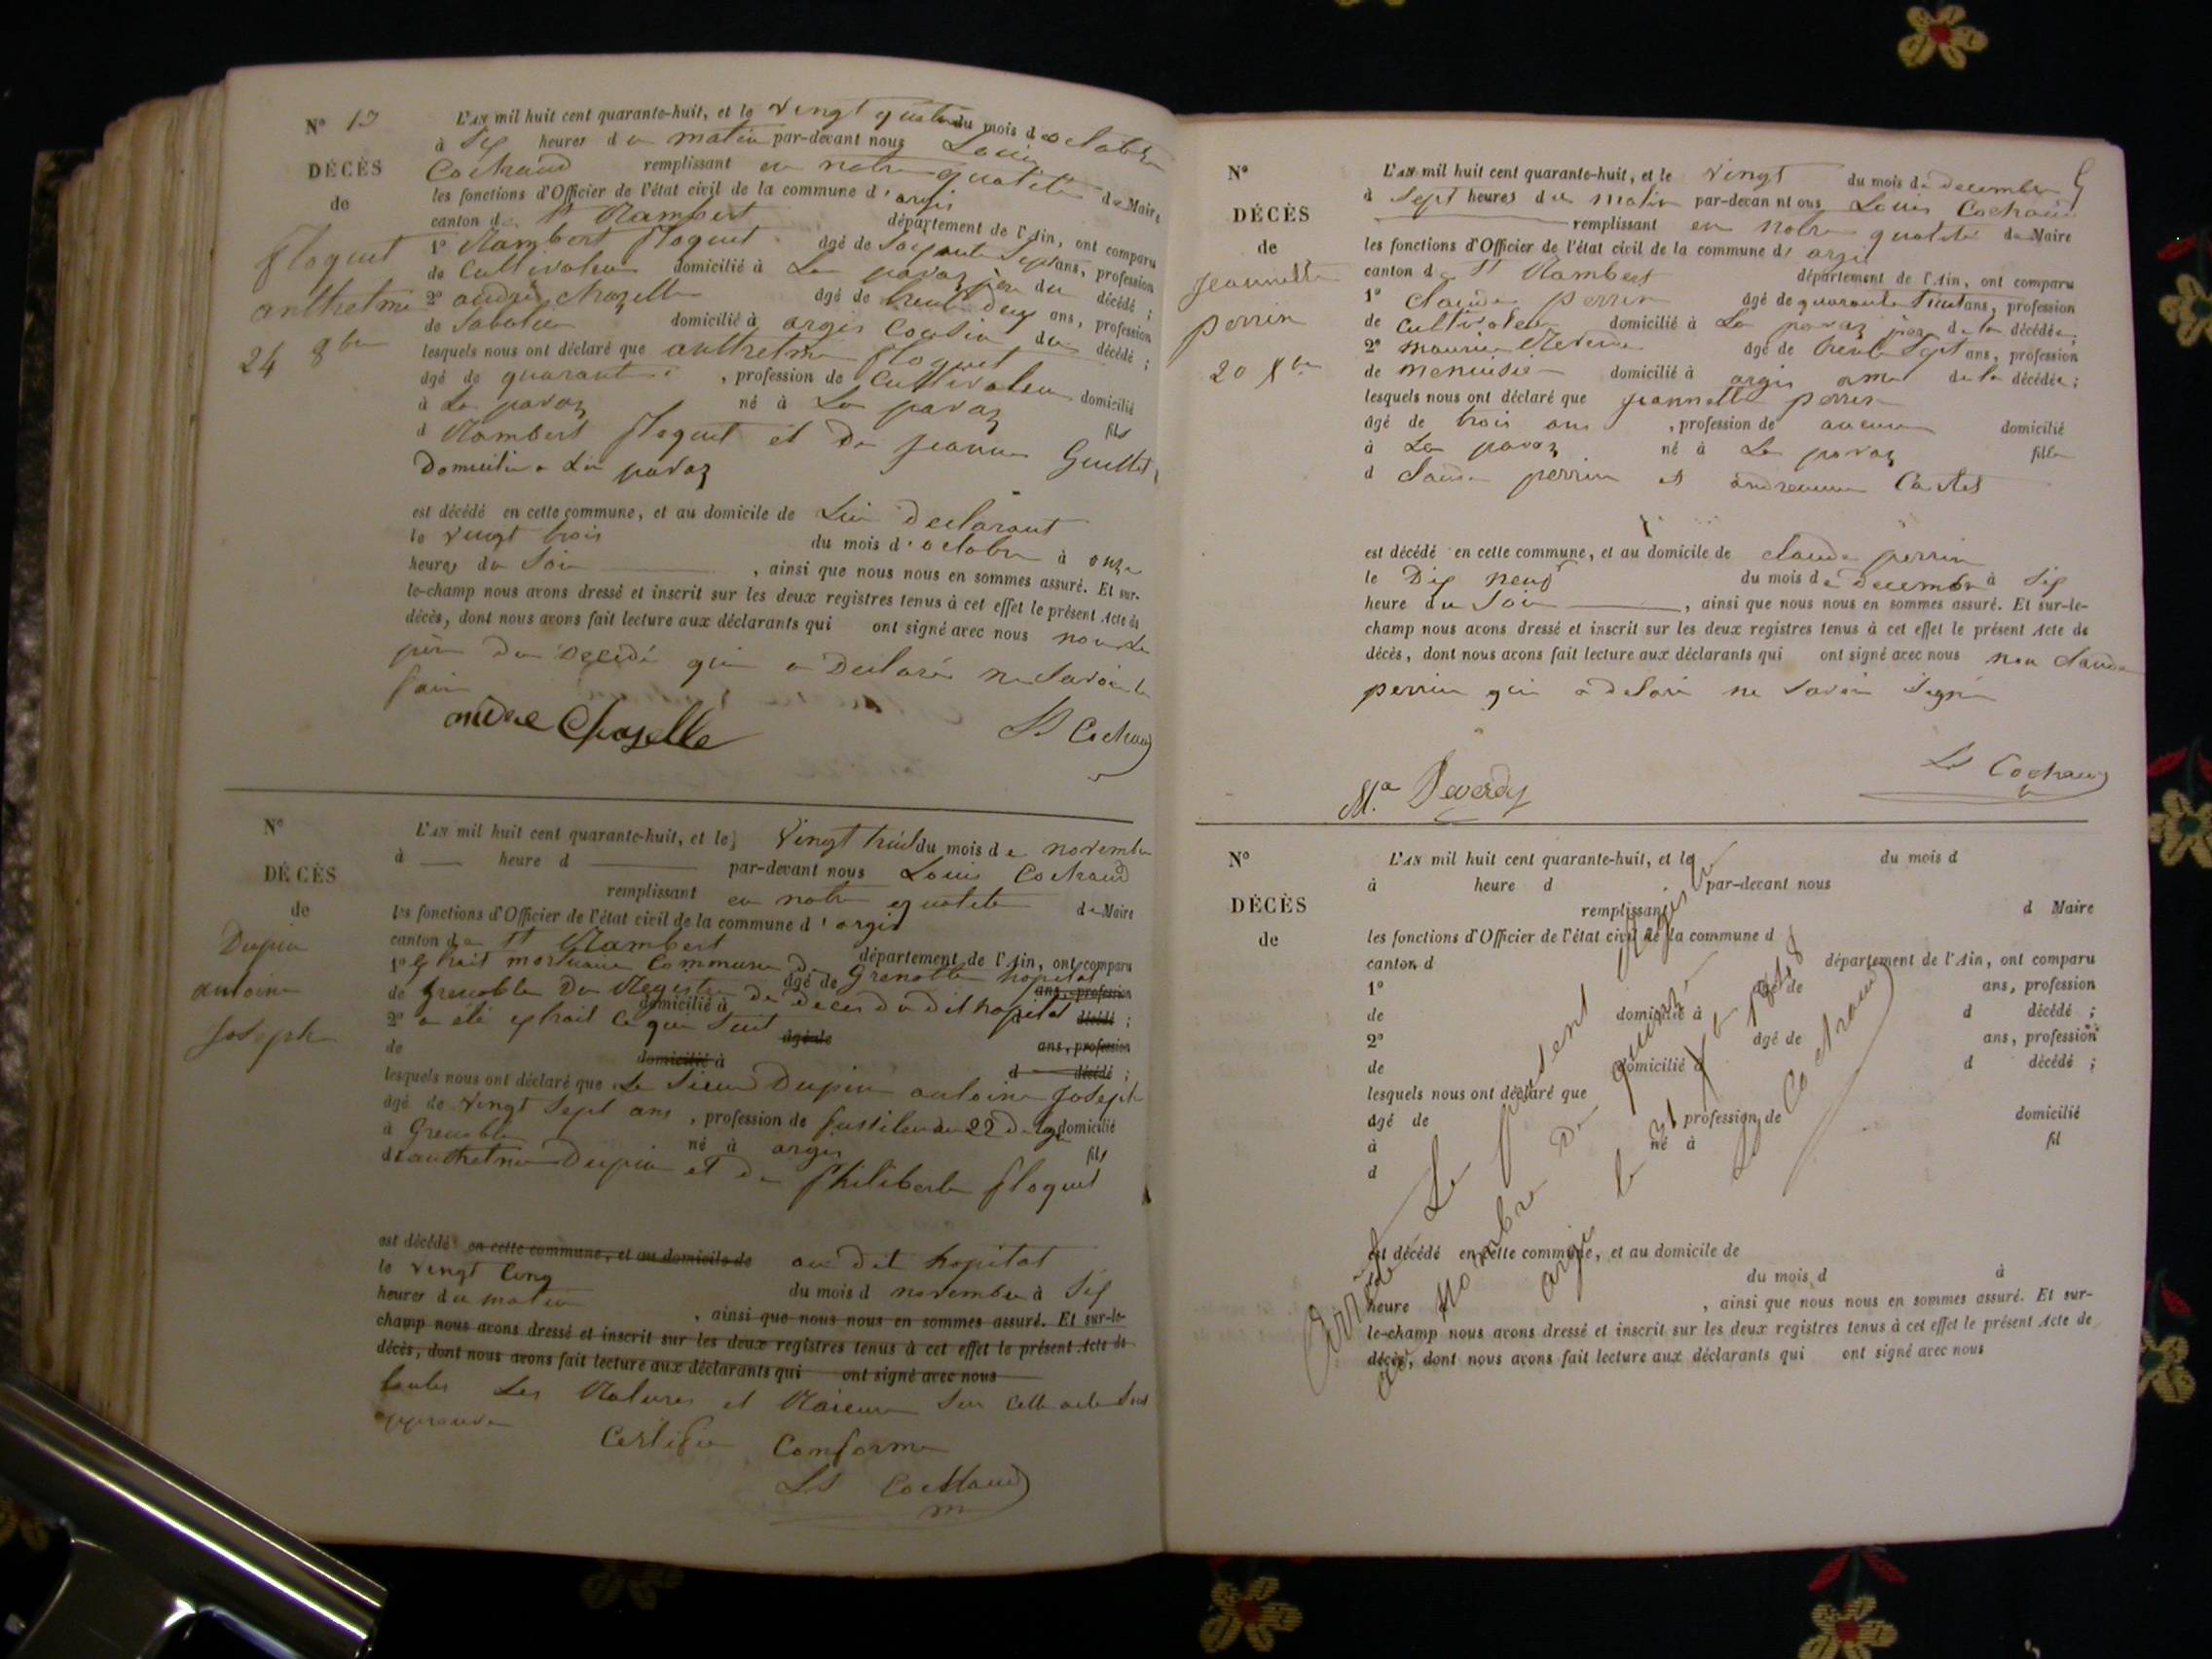 N° 13
DÉCÈS
de
floquet
anthelme
24 8bre
L'AN mil huit cent quarante-huit, et le vingt quatre du mois d octobre
à Six heures du matin par-devant nous Louis
Cochaud remplissant en notre qualité de Maire
les fonctions d'Officier de l'état civil de la commune d'argis
canton de St Rambert département de l'Ain, ont comparu
1° Rambert floquet âgé de Soixante Sept ans, profession
de Cultivateur domicilié à La pavaz père du décédé ;
2° andré chazelle âgé de trente deux ans, profession
de Sabotier domicilié à argis Cousin du décédé ;
lesquels nous ont déclaré que anthelme floquet
âgé de quarante , profession de Cultivateur domicilié
à La pavaz né à La pavaz fils
d Rambert floquet et De jeanne Guillet
Domicilié a La pavaz
est décédé en cette commune, et au domicile de Lui Declarant
le vingt trois du mois d'octobre à onze
heures du Soir , ainsi que nous nous en sommes assuré. Et sur-
le-champ nous avons dressé et inscrit sur les deux registres tenus à cet effet le présent Acte de
décès, dont nous avons fait lecture aux déclarants qui ont signé avec nous non Le
père Du Décédé qui a Declaré ne Savoir le
faire
andré Chazelle Ls Cochaud
N°
DÉCÈS
de
Dupin
antoine
Joseph
L'AN mil huit cent quarante-huit, et le Vingt huit du mois de novembre
à heure d par-devant nous Louis Cochaud
remplissant en notre qualité de Maire
les fonctions d'Officier de l'état civil de la commune d'argis
canton de St Rambert département de l'Ain, ont comparu
1° Extrait mortuaire Commune De âgé de Grenoble hopital ans, profession
de Grenoble Du Registre De Deces du dit hopital domicilié à décédé ;
2° a été extrait Ce qui Suit âgé de ans, profession
de domicilié à d décédé ;
lesquels nous ont déclaré que Le Sieur Dupin antoine Joseph
âgé de vingt Sept ans , profession de fusilier au 22 De ligne domicilié
à Grenoble né à argis fils
d'anthelme Dupin et De philiberte floquet
est décédé en cette commune, et au domicile de au dit hopital
le vingt Cinq du mois d novembre à Six
heures du matin , ainsi que nous nous en sommes assuré. Et sur-le-
champ nous avons dressé et inscrit sur les deux registres tenus à cet effet le présent Acte de
décès, dont nous avons fait lecture aux déclarants qui ont signé avec nous
toutes Les Ratures et Sur Cette acte Sont
approuvée
Certifié Conforme
Ls Cochaud
N°
DÉCÈS
de
Jeannette
perrin
20 Xbre
L'AN mil huit cent quarante-huit, et le vingt du mois de decembre
à Sept heures du matin par-devan nt ous Louis Cochaud
remplissant en notre qualité de Maire
les fonctions d'Officier de l'état civil de la commune d'argis
canton de St Rambert département de l'Ain, ont comparu
1° claude perrin âgé de quarante huit ans, profession
de Cultivateur domicilié à La pavaz père de la décédée ;
2° Maurice âgé de trente Sept ans, profession
de Menuisier domicilié à argis ami de la décédée ;
lesquels nous ont déclaré que jeannette perrin
âgé de trois ans , profession de aucune domicilié
à La pavaz né à La pavaz fille
d Claude perrin et
est décédé en cette commune, et au domicile de claude perrin
le Dix neuf du mois de decembre à Six
heure du Soir , ainsi que nous nous en sommes assuré. Et sur-le-
champ nous avons dressé et inscrit sur les deux registres tenus à cet effet le présent Acte de
décès, dont nous avons fait lecture aux déclarants qui ont signé avec nous non Claude
perrin qui a delaré ne Savoir Signé
Ls Cochaud
N°
DÉCÈS
de
L'AN mil huit cent quarante-huit, et le du mois d
à heure d par-devant nous
remplissant d Maire
les fonctions d'Officier de l'état civil de la commune d
canton d département de l'Ain, ont comparu
1° âgé de ans, profession
de domicilié à d décédé ;
2° âgé de ans, profession
de domicilié à d décédé ;
lesquels nous ont déclaré que
âgé de profession de domicilié
à né à fil
d
est décédé en cette commune, et au domicile de
du mois d à
heure d , ainsi que nous nous en sommes assuré. Et sur-
le-champ nous avons dressé et inscrit sur les deux registres tenus à cet effet le présent Acte de
décès, dont nous avons fait lecture aux déclarants qui ont signé avec nous
Arrété Le présent Registre
au Nombre De quinze
argis le 31 Xbre 1848
Ls Cochaud